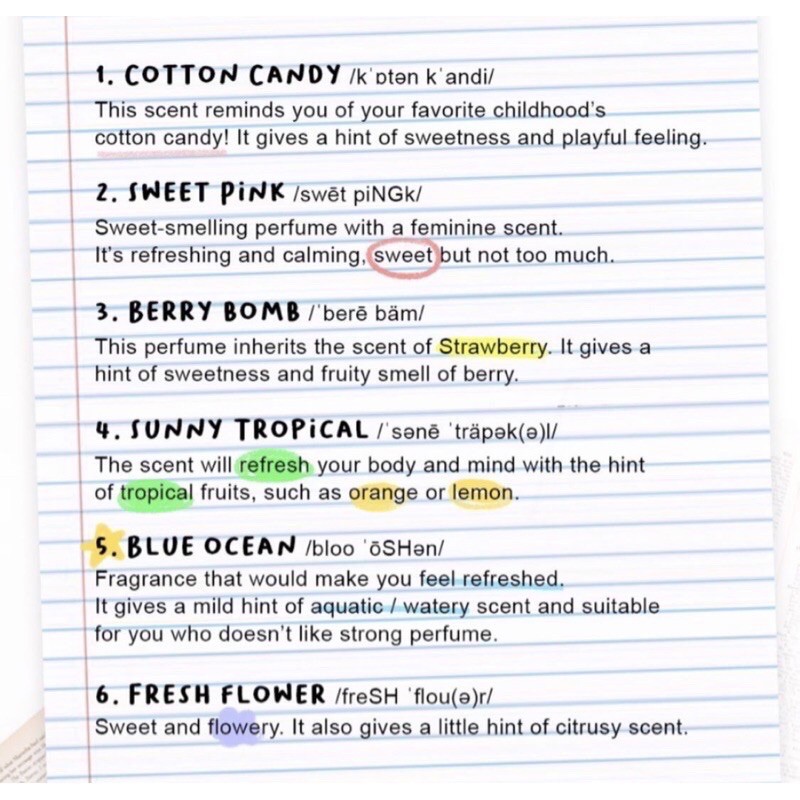 1. COTTON CANDY /kˈɒtən kˈandi/
This scent reminds you of your favorite childhood's
cotton candy! It gives a hint of sweetness and playful feeling.
2. SWEET PiNK /swēt piNGk/
Sweet-smelling perfume with a feminine scent.
It's refreshing and calming, sweet but not too much.
3. BERRY BOMB /ˈberē bäm/
This perfume inherits the scent of Strawberry. It gives a
hint of sweetness and fruity smell of berry.
4. SUNNY TROPiCAL /ˈsənē ˈträpək(ə)l/
The scent will refresh your body and mind with the hint
of tropical fruits, such as orange or lemon.
5. BLUE OCEAN /bloo ˈōSHən/
Fragrance that would make you feel refreshed.
It gives a mild hint of aquatic / watery scent and suitable
for you who doesn't like strong perfume.
6. FRESH FLOWER /freSH ˈflou(ə)r/
Sweet and flowery. It also gives a little hint of citrusy scent.